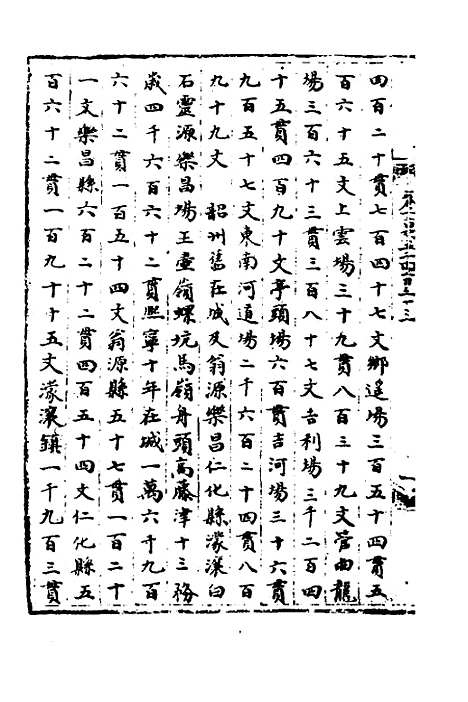 四百二十貫七百四十七文鄉遥場三百五十四貫五
百六十五文上雲場三十九貫八百三十九文管曲龍
場三百六十三貫三百八十七文古利場三千二百四
十五貫四百九十文亭頭場六百貫吉河場三十六貫
九百五十七文東南河道場二千六百二十四貫八百
九十九文 韶州舊在城及翁源樂昌仁化縣濛瀼臼
石靈源樂昌場王壷嶺螺坑馬嶺舟頭高藤津十三務
歲四千六百六十二貫熙寧十年在城一萬六千九百
六十二貫一百五十四文翁源縣五十七貫一百二十
一文樂昌縣六百二十二貫四百五十四文仁化縣五
百六十二貫一百九十十五文濛瀼鎮一千九百三貫